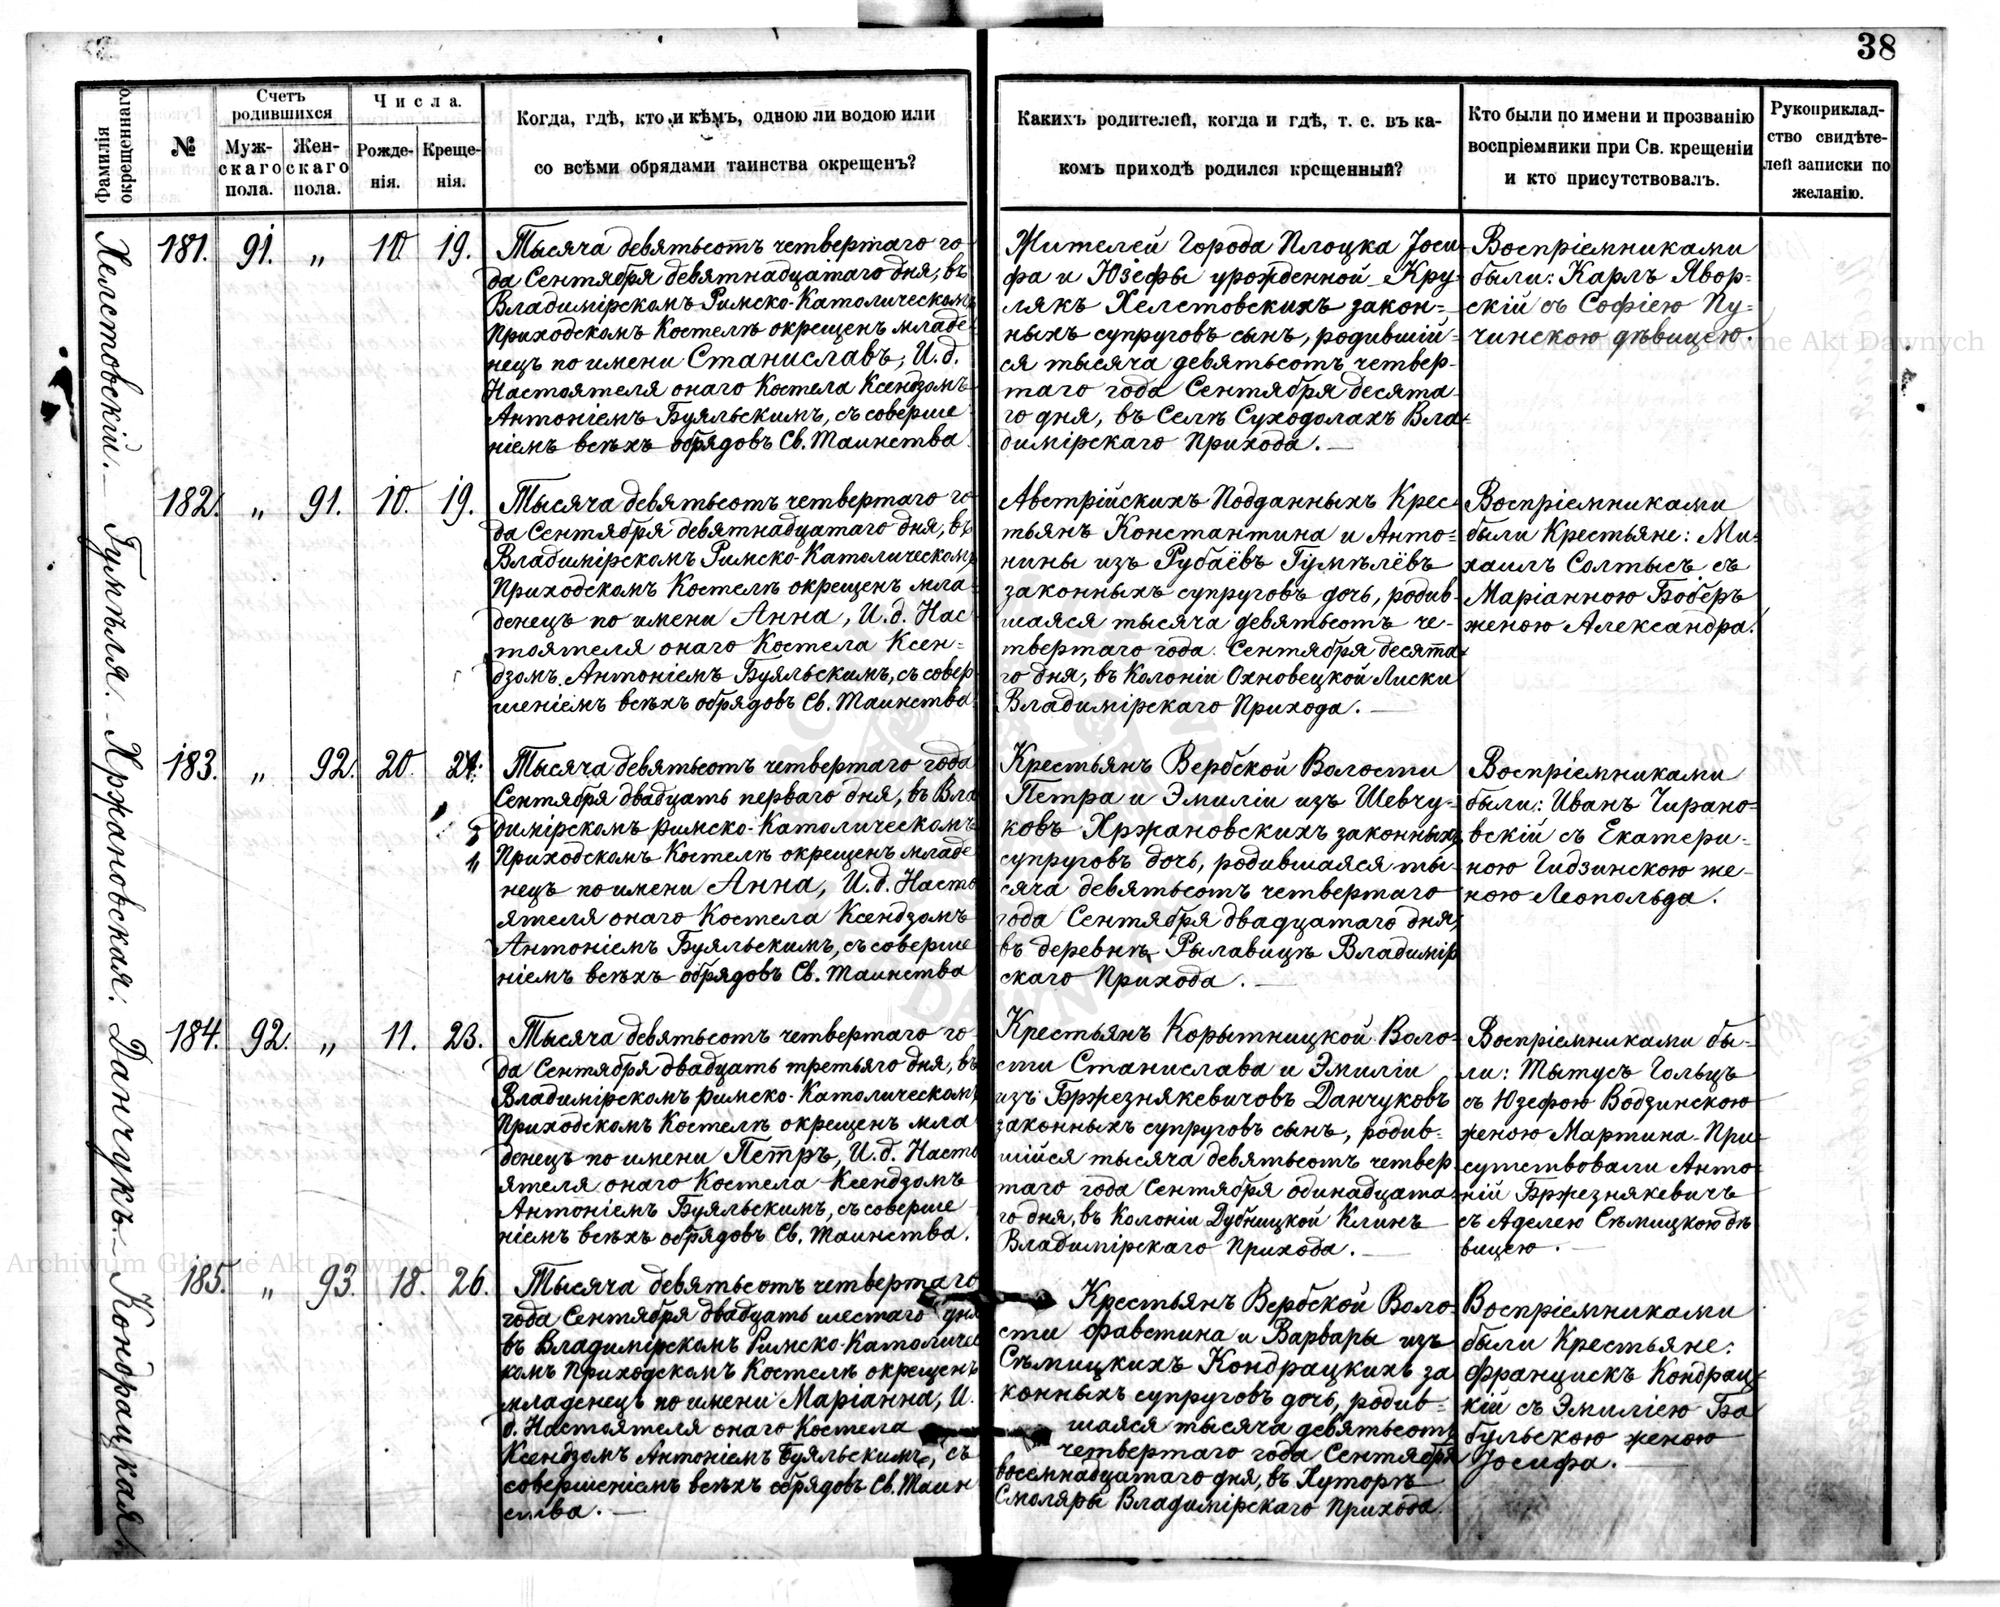 38
Фамилія окрещеннаго
№
Счетъ родившихся
Муж-
скаго
пола.
Жен-
скаго
пола.
Числа.
Рожде-
нія.
Креще-
нія.
Когда, гдѣ, кто и кѣмъ, одною ли водою или
со всѣми обрядами таинства окрещенъ?
Какихъ родителей, когда и гдѣ, т. е. въ ка-
комъ приходѣ родился крещенный?
Кто были по имени и прозванію
воспріемники при Св. крещеніи
и кто присутствовалъ.
Рукоприклад-
ство свидѣте-
лей записки по
желанію.
Хелстовскій.
181. 91. „ 10. 19.
Тысяча девятьсотъ четвертаго го-
да Сентября девятнадцатаго дня, въ
Владимірскомъ Римско-Католическомъ
Приходскомъ Костелѣ окрещенъ младе-
нецъ по имени Станиславъ, И. д.
Настоятеля онаго Костела Ксендзомъ
Антоніемъ Буяльскимъ, съ соверше
ніемъ всѣхъ обрядовъ Св. Таинства
Жителей Города Плоцка Іоси-
фа и Юзефы урожденной Кру-
лякъ Хелстовскихъ закон-
ныхъ супруговъ сынъ, родившій-
ся тысяча девятьсотъ четвер-
таго года Сентября десята-
го дня, въ Селѣ Суходолахъ Вла-
димірскаго Прихода.
Воспріемниками
были: Карлъ Явор-
скій съ Софіею Пу-
чинскою дѣвицею.
Гумѣля.
182. „ 91. 10. 19.
Тысяча девятьсотъ четвертаго го-
да Сентября девятнадцатаго дня, въ
Владимірскомъ Римско-Католическомъ
Приходскомъ Костелѣ окрещенъ мла-
денецъ по имени Анна, И. д. Нас
тоятеля онаго Костела Ксен-
дзомъ Антоніемъ Буяльскимъ, съ совер
шеніемъ всѣхъ обрядовъ Св. Таинства
Австрійскихъ Подданныхъ Крес-
тьянъ Константина и Анто-
нины изъ Рубаёвъ Гумѣлёвъ
законныхъ супруговъ дочь, родив-
шаяся тысяча девятьсотъ че-
твертаго года Сентября десята-
го дня, въ Колоніи Охновецкой Лиски
Владимірскаго Прихода.
Воспріемниками
были Крестьяне: Ми-
хаилъ Солтысъ съ
Маріанною Боберъ
женою Александра.
Хржановская.
183. „ 92. 20. 21.
Тысяча девятьсотъ четвертаго года
Сентября двадцать перваго дня, въ Вла
димірскомъ римско-Католическомъ
Приходскомъ Костелѣ окрещенъ младе
нецъ по имени Анна, И. д. Насто
ятеля онаго Костела Ксендзомъ
Антоніемъ Буяльскимъ, съ соверше
ніемъ всѣхъ обрядовъ Св. Таинства
Крестьянъ Вербской Волости
Петра и Эмиліи изъ Шевчу-
ковъ Хржановскихъ законныхъ
супруговъ дочь, родившаяся ты-
сяча девятьсотъ четвертаго
года Сентября двадцатаго дня,
въ деревнѣ Рылавицѣ Владимір
скаго Прихода.
Воспріемниками
были: Иванъ Чирано-
вскій съ Екатери-
ною Гидзинскою же-
ною Леопольда.
Данчукъ.
184. 92. „ 11. 23.
Тысяча девятьсотъ четвертаго го-
да Сентября двадцать третьяго дня, въ
Владимірскомъ римско-Католическомъ
Приходскомъ Костелѣ окрещенъ мла
денецъ по имени Петръ, И. д. Насто
ятеля онаго Костела Ксендзомъ
Антоніемъ Буяльскимъ, съ соверше
ніемъ всѣхъ обрядовъ Св. Таинства.
Крестьянъ Корытницкой Воло-
сти Станислава и Эмиліи
изъ Бржезнякевичовъ Данчуковъ
законныхъ супруговъ сынъ, родив-
шійся тысяча девятьсотъ четвер
таго года Сентября одинадцата-
го дня, въ Колоніи Дубницкой Клинъ
Владимірскаго Прихода.
Воспріемниками бы-
ли: Тытусъ Гольцъ
съ Юзефою Водзинскою
женою Мартина. При-
сутствовали Анто-
ній Бржезнякевичъ
съ Аделею Сѣмицкою дѣ
вицею.
Кондрацкая.
185. „ 93. 18. 26.
Тысяча девятьсотъ четвертаго
года Сентября двадцать шестаго дня
въ Владимірскомъ Римско-Католичес
комъ Приходскомъ Костелѣ окрещенъ
младенецъ по имени Маріанна, И.
д. Настоятеля онаго Костела
Ксендзомъ Антоніемъ Буяльскимъ, съ
совершеніемъ всѣхъ обрядовъ Св. Таин
ства.
Крестьянъ Вербской Воло-
сти Фавстина и Варвары изъ
Сѣмицкихъ Кондрацкихъ за
конныхъ супруговъ дочь, родив-
шаяся тысяча девятьсотъ
четвертаго года Сентября
восемнадцатаго дня, въ Хуторѣ
Смоляры Владимірскаго Прихода.
Воспріемниками
были Крестьяне:
Францискъ Кондрац-
кій съ Эмиліею Ба
бульскою женою
Іосифа.
Archiwum Główne Akt Dawnych
Archiwum Główne Akt Dawnych